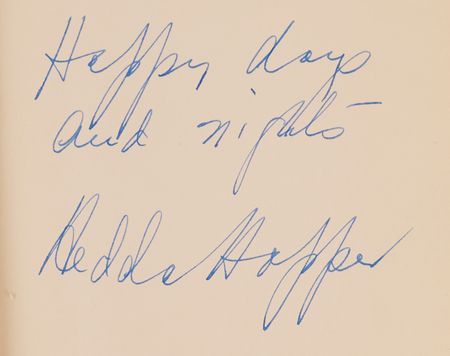 Happy days
and nights
Hedda Hopper